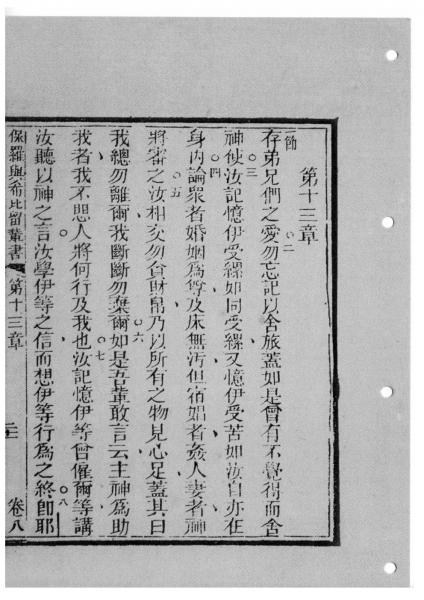 第十三章
一節
存弟兄們之愛勿忘記以舍旅蓋如是曾有不覺得而舍
神使汝記憶伊受縲如同受縲又憶伊受苦如汝自亦在
身内論眾者婚姻為尊及床無汚但宿娼者姦人妻者神
將審之汝相交勿貪財帛乃以所有之物見心足蓋其曰
我總勿離爾我斷斷勿棄爾如是吾輩敢言云主神為助
我者我不思人將何行及我也汝記憶伊等曾僱爾等講
汝聽以神之言汝學伊等之信而想伊等行為之終即耶
保羅與希比留輩書 第十三章 卷八
二
三
四
五
六
七
八